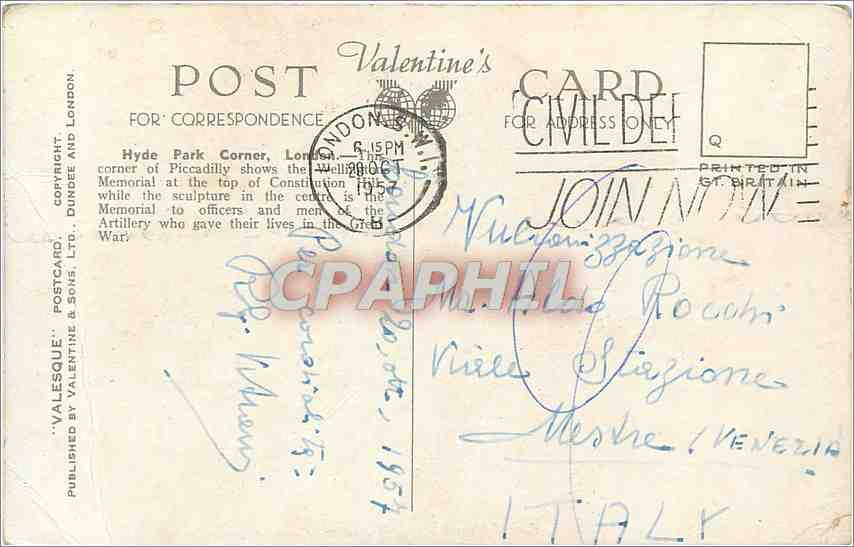 POST Valentine's CARD
FOR CORRESPONDENCE
FOR ADDRESS ONLY
Hyde Park Corner, London.—This
corner of Piccadilly shows the Wellington
Memorial at the top of Constitution Hill,
while the sculpture in the centre is the
Memorial to officers and men of the
Artillery who gave their lives in the Great
War.
"VALESQUE" POSTCARD. COPYRIGHT.
PUBLISHED BY VALENTINE & SONS, LTD., DUNDEE AND LONDON.
LONDON. S.W.1.
6.15PM
20 OCT
1957
CIVIL DEF
JOIN NOW
Q
PRINTED IN
GT. BRITAIN
CPAPHIL
20, ott, 1957
Per cordialità:
Vulcanizzazione
Aldo Rocchi
Viale Stazione
Mestre (VENEZIA
ITALY